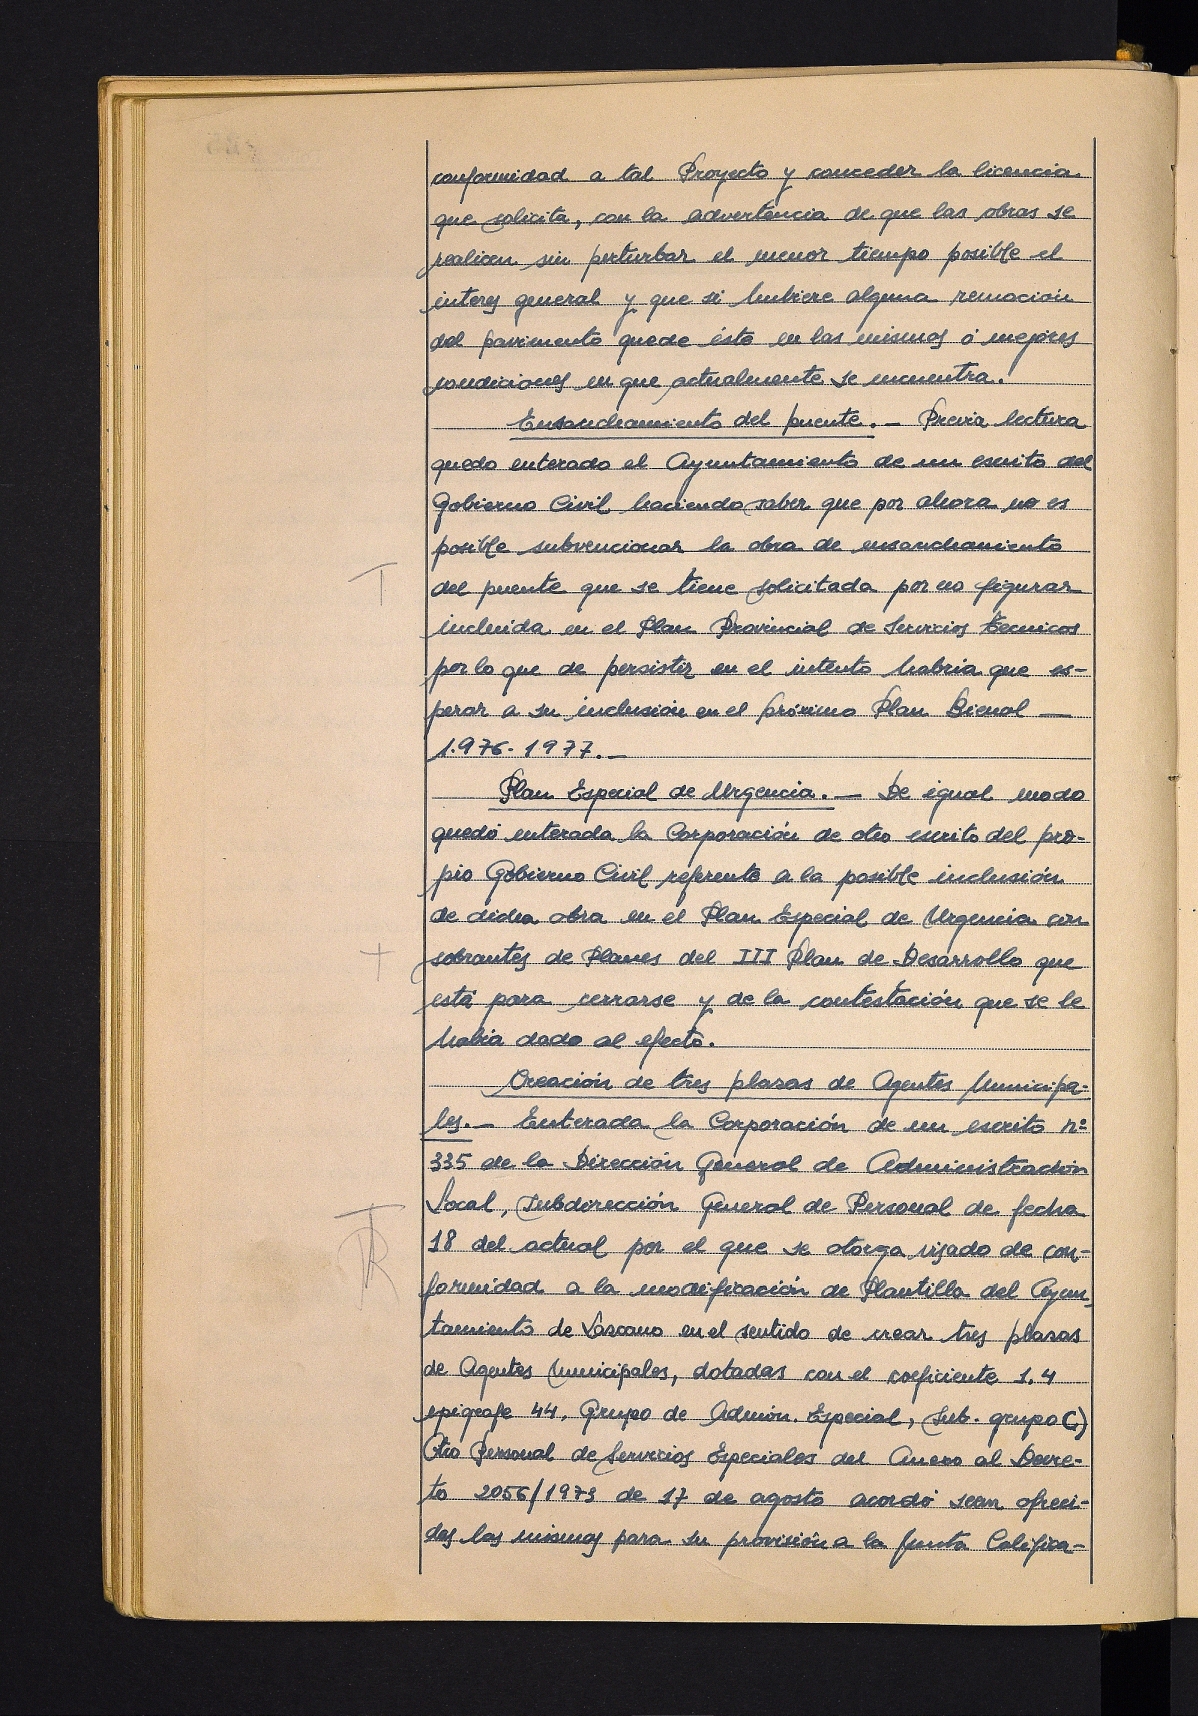 conformidad a tal Proyecto y conceder la licencia
que solicita, con la advertencia de que las obras se
realicen sin perturbar el menor tiempo posible el
interes general y que si hubiere alguna remocion
del pavimento quede ésto en las mismos ó mejores
condiciones en que actualmente se encuentra.
Ensanchamiento del puente.- Previa lectura
quedo enterado el Ayuntamiento de un escrito del
Gobierno Civil haciendo saber que por ahora no es
posible subvencionar la obra de ensanchamiento
T
del puente que se tiene solicitada por no figurar
incluida en el Plan Provincial de Servicios Técnicos
por lo que de persistir en el intento habria que es-
perar a su inclusión en el próximo Plan Bienal —
1.976-1977.-
Plan Especial de Urgencia.- De igual modo
quedó enterada la Corporación de otro escrito del pro-
pio Gobierno Civil referente a la posible inclusión
de dicha obra en el Plan Especial de Urgencia con
+
sobrantes de Planes del III Plan de Desarrollo que
está para cerrarse y de la contestación que se le
habia dado al efecto.
Creación de tres plazas de Agentes Municipa-
les.- Enterada la Corporación de un escrito nº
335 de la Dirección General de Administración
Local, Subdirección General de Personal de fecha
18 del actual por el que se otorga visado de con-
formidad a la modificación de Plantilla del Ayun-
tamiento de Lazcano en el sentido de crear tres plazas
de Agentes Municipales, dotadas con el coeficiente 1.4
epigrafe 44, Grupo de Admón. Especial, Sub. grupo C)
Otro Personal de Servicios Especiales del Anexo al Decre-
to 2056/1973 de 17 de agosto acordó sean ofreci-
das las mismas para su provisión a la Junta Califica-